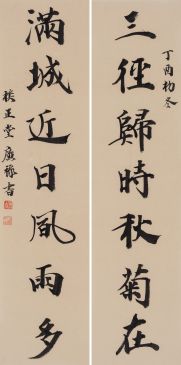 三徑歸時秋菊在
丁酉初冬
滿城近日風雨多
振正堂廣發書